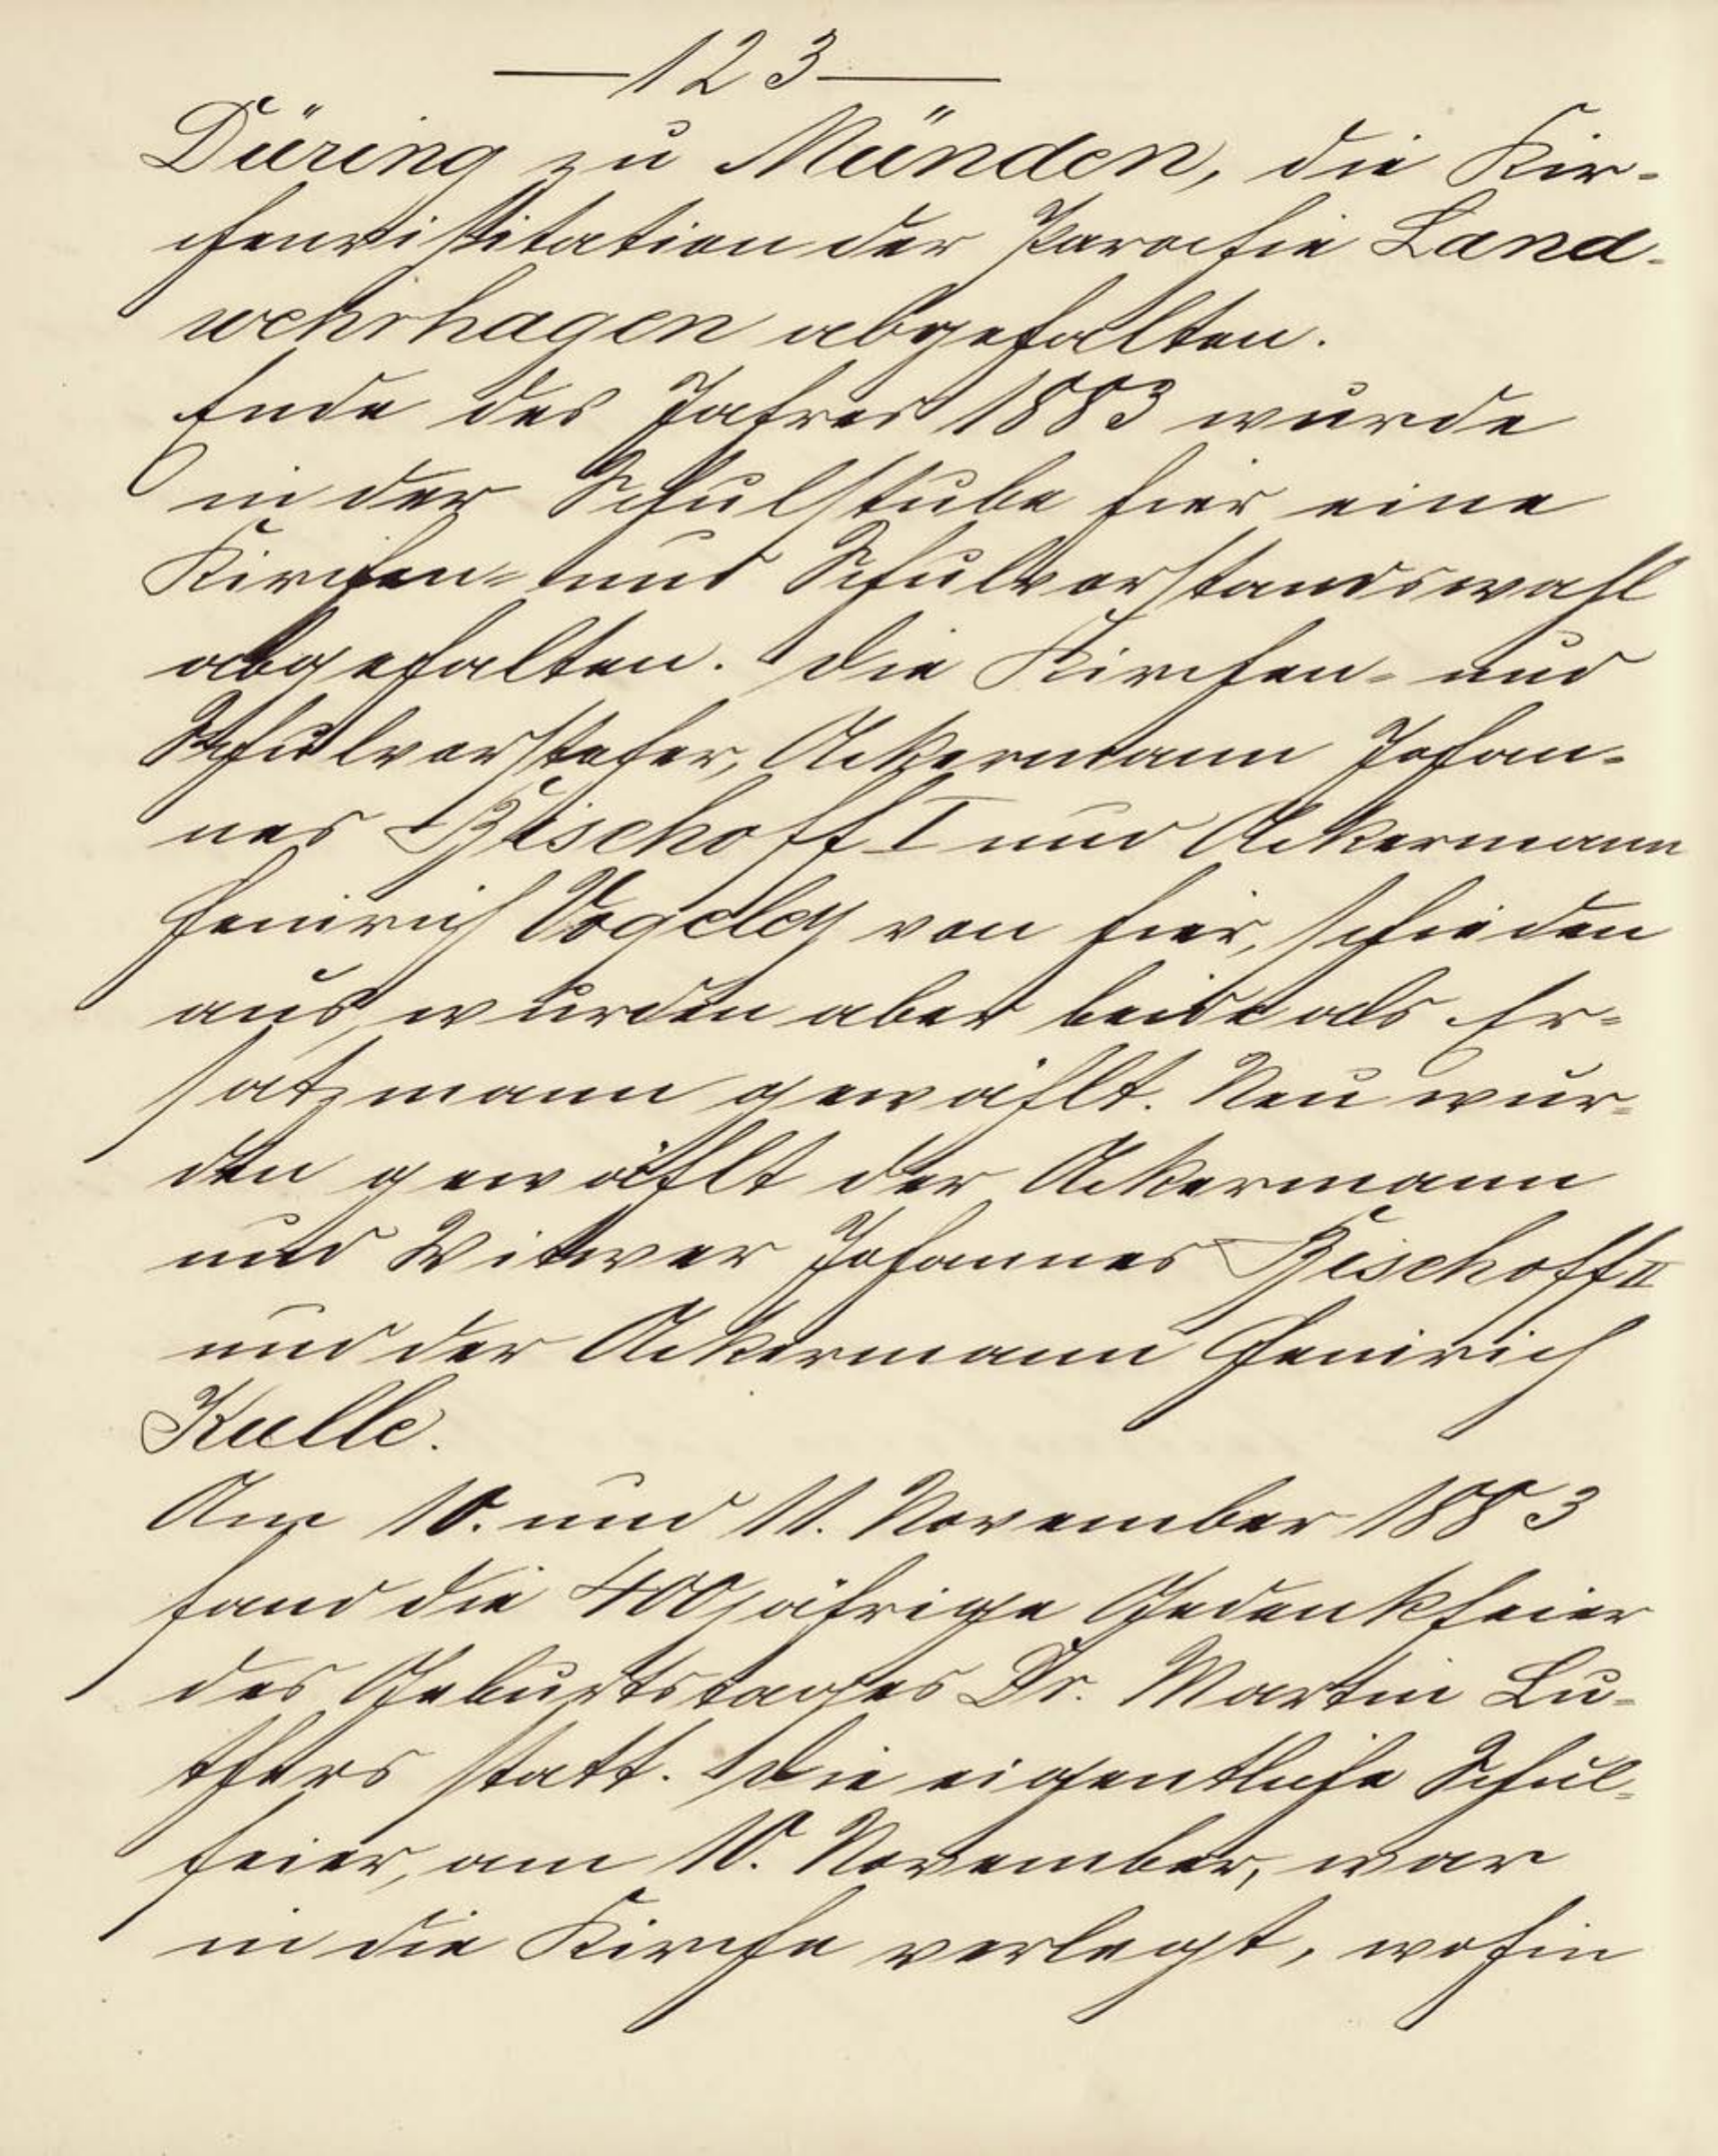 —123—
Düring zu Münden, die Kir-
chenvisitation der Parochie Land-
wehrhagen abgehalten.
Ende des Jahres 1883 wurde
in der Schulstube hier eine
Kirchen- und Schulvorstandswahl
abgehalten. Die Kirchen- und
Schulvorsteher, Ackermann Johan-
nes Bischoff I und Ackermann
Heinrich Vogeley von hier, schieden
aus, wurden aber beide als Er-
satzmann gewählt. Neu wur-
den gewählt der Ackermann
und Witwer Johannes Bischoff II
und der Ackermann Heinrich
Kulle.
Am 10. und 11. November 1883
fand die 400jährige Gedenkfeier
des Geburtstages Dr. Martin Lu-
thers statt. Die eigentliche Schul-
feier, am 10. November, war
in die Kirche verlegt, wohin